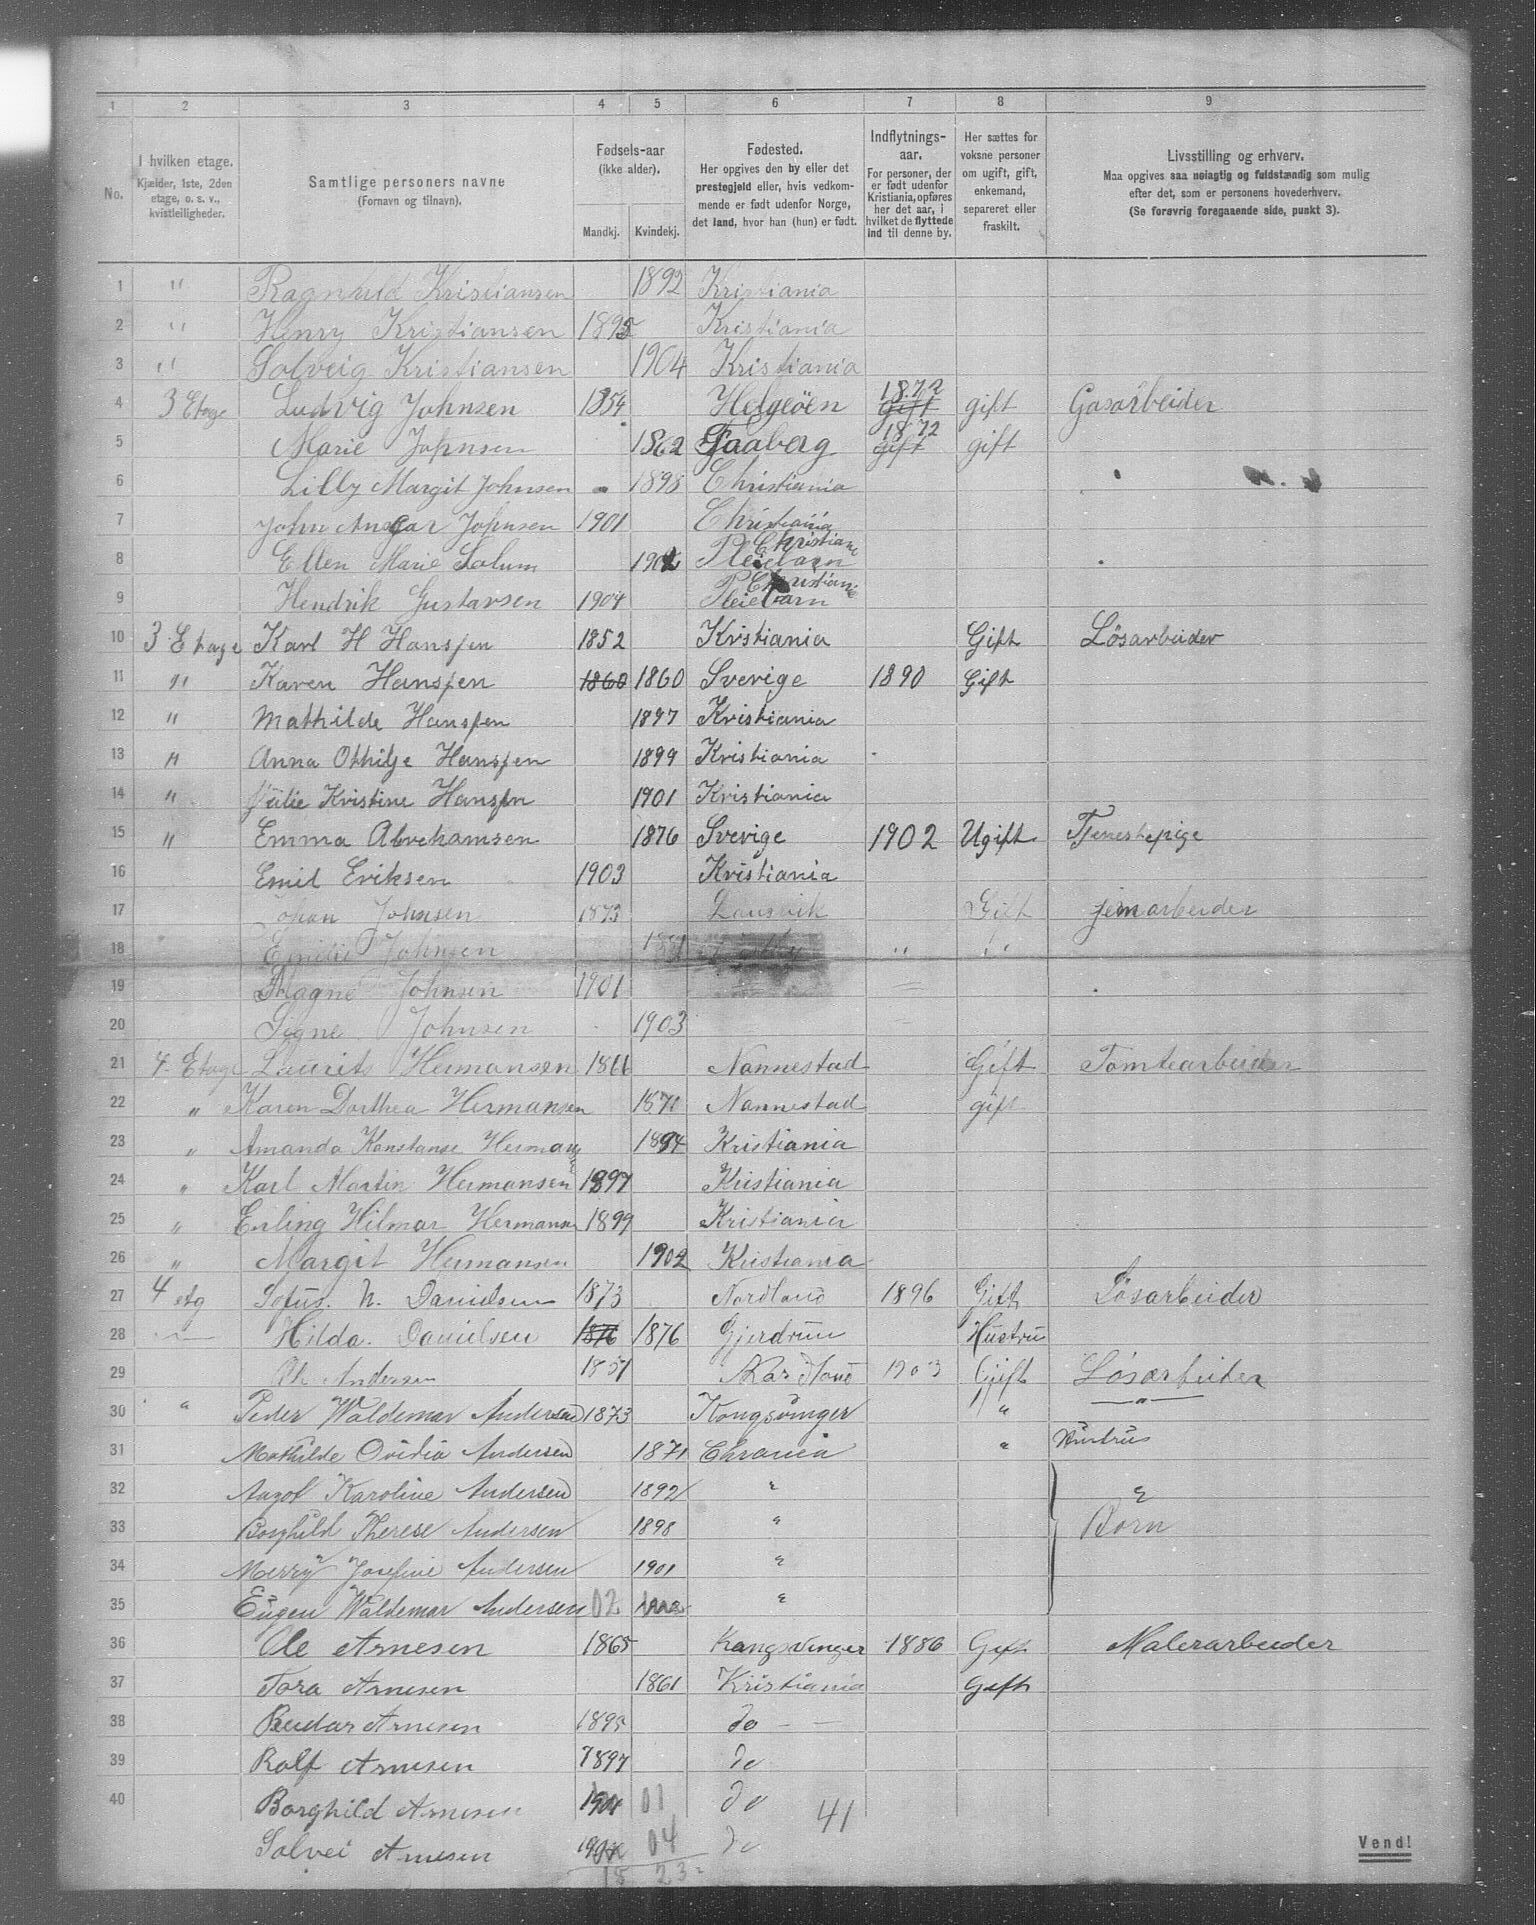 1 2 3 4 5 6 7 8 9
No.
I hvilken etage. Kjælder, 1ste, 2den etage, o. s. v., kvistleiligheder.
Samtlige personers navne (Fornavn og tilnavn).
Fødsels-aar (ikke alder).
Mandkj. Kvindekj.
Fødested. Her opgives den by eller det prestegjeld eller, hvis vedkommende er født udenfor Norge, det land, hvor han (hun) er født.
Indflytnings-aar. For personer, der er født udenfor Kristiania, opføres her det aar, i hvilket de flyttede ind til denne by.
Her sættes for voksne personer om ugift, gift, enkemand, separeret eller fraskilt.
Livsstilling og erhverv. Maa opgives saa nøiagtig og fuldstændig som mulig efter det, som er personens hovederhverv. (Se forøvrig foregaaende side, punkt 3).
1 " Ragnhild Kristiansen 1892 Kristiania
2 " Henry Kristiansen 1895 Kristiania
3 " Solveig Kristiansen 1904 Kristiania
4 3 Etage Ludvig Johnsen 1854 Helgeöen 1872 gift gift Gasarbeider
5 Marie Johnsen 1862 Faaberg 1872 gift gift
6 Lilly Margit Johnsen 1898 Christiania
7 John Ansgar Johnsen 1901 Christiania
8 Ellen Marie Solum 1902 Pleiebarn Christiane
9 Hendrik Gustavsen 1904 Pleiebarn Christiania
10 3 Etage Karl H Hansen 1852 Kristiania Gift Lösarbeider
11 " Karen Hansen 1860 1860 Sverige 1890 Gift
12 " Mathilde Hansen 1897 Kristiania
13 " Anna Othilje Hansen 1899 Kristiania
14 " Julie Kristine Hansen 1901 Kristiania
15 " Emma Abrehamsen 1876 Sverige 1902 Ugift Tjenestepige
16 Emil Eriksen 1903 Kristiania
17 Johan Johnsen 1873 Gift jernarbeider
18 Emilie Johnsen " "
19 Magne Johnsen 1901
20 Signe Johnsen 1903
21 4 Etage Laurits Hermansen 1866 Nannestad Gift Tomtearbeider
22 " Karen Dorthea Hermansen 1871 Nannestad gift
23 " Amanda Konstanse Hermans 1894 Kristiania
24 " Karl Martin Hermansen 1897 Kristiania
25 " Erling Hilmar Hermansen 1899 Kristiania
26 " Margit Hermansen 1902 Kristiania
27 4 etg Sofus. N. Danielsen 1873 Nordland 1896 Gift Lösarbeider
28 Hilda. Danielsen 1876 1876 Gjerdrum Hustru
29 Andersen 1851 Nordland 1903 Gift Lösarbeider
30 " Peder Waldemar Andersen 1873 Kongsvinger " "
31 Mathilde Ovidia Andersen 1871 Chrania " Hustru
32 Aagot Karoline Andersen 1892 " "
33 Borghild Therese Andersen 1898 " Born
34 Merry Josefine Andersen 1901 "
35 Eugen Waldemar Andersen 02 "
36 Ole Arnesen 1865 Kongsvinger 1886 Gift Malerarbeider
37 Tora Arnesen 1861 Kristiania Gift
38 Reidar Arnesen 1895 do
39 Rolf Arnesen 1897 do
40 Borghild Arnesen 1901 01 do
Solvei Arnesen 04 do
41
18 23
Vend!